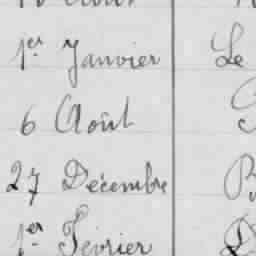 1er Janvier Le
6 Août
27 Décembre
1er Février